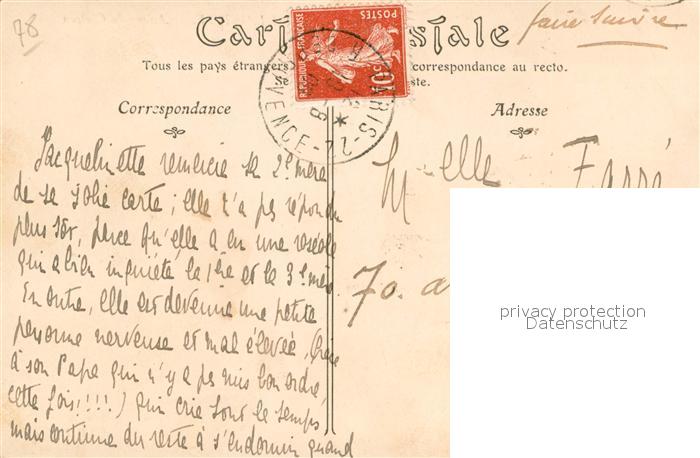 78
faire suivre
Carte Postale
POSTES
10c
REPUBLIQUE FRANÇAISE
PARIS-24
PROVENCE
Tous les pays étrangers correspondance au recto.
Correspondance
Adresse
Jacquelinette remercie sa 2e mère
de sa jolie carte ; elle t'a pas répondu
plus tôt, parce qu'elle a eu une roséole
qui a bien inquiété la 1ère et la 3e mère
En outre, elle est devenue une petite
personne nerveuse et mal élevée, (grâce
à son Papa qui n'y a pas mis bon ordre
cette fois !!!! ) qui crie tout le temps
mais continue du reste à s'endormir quand
Melle Farré
70. a
privacy protection
Datenschutz